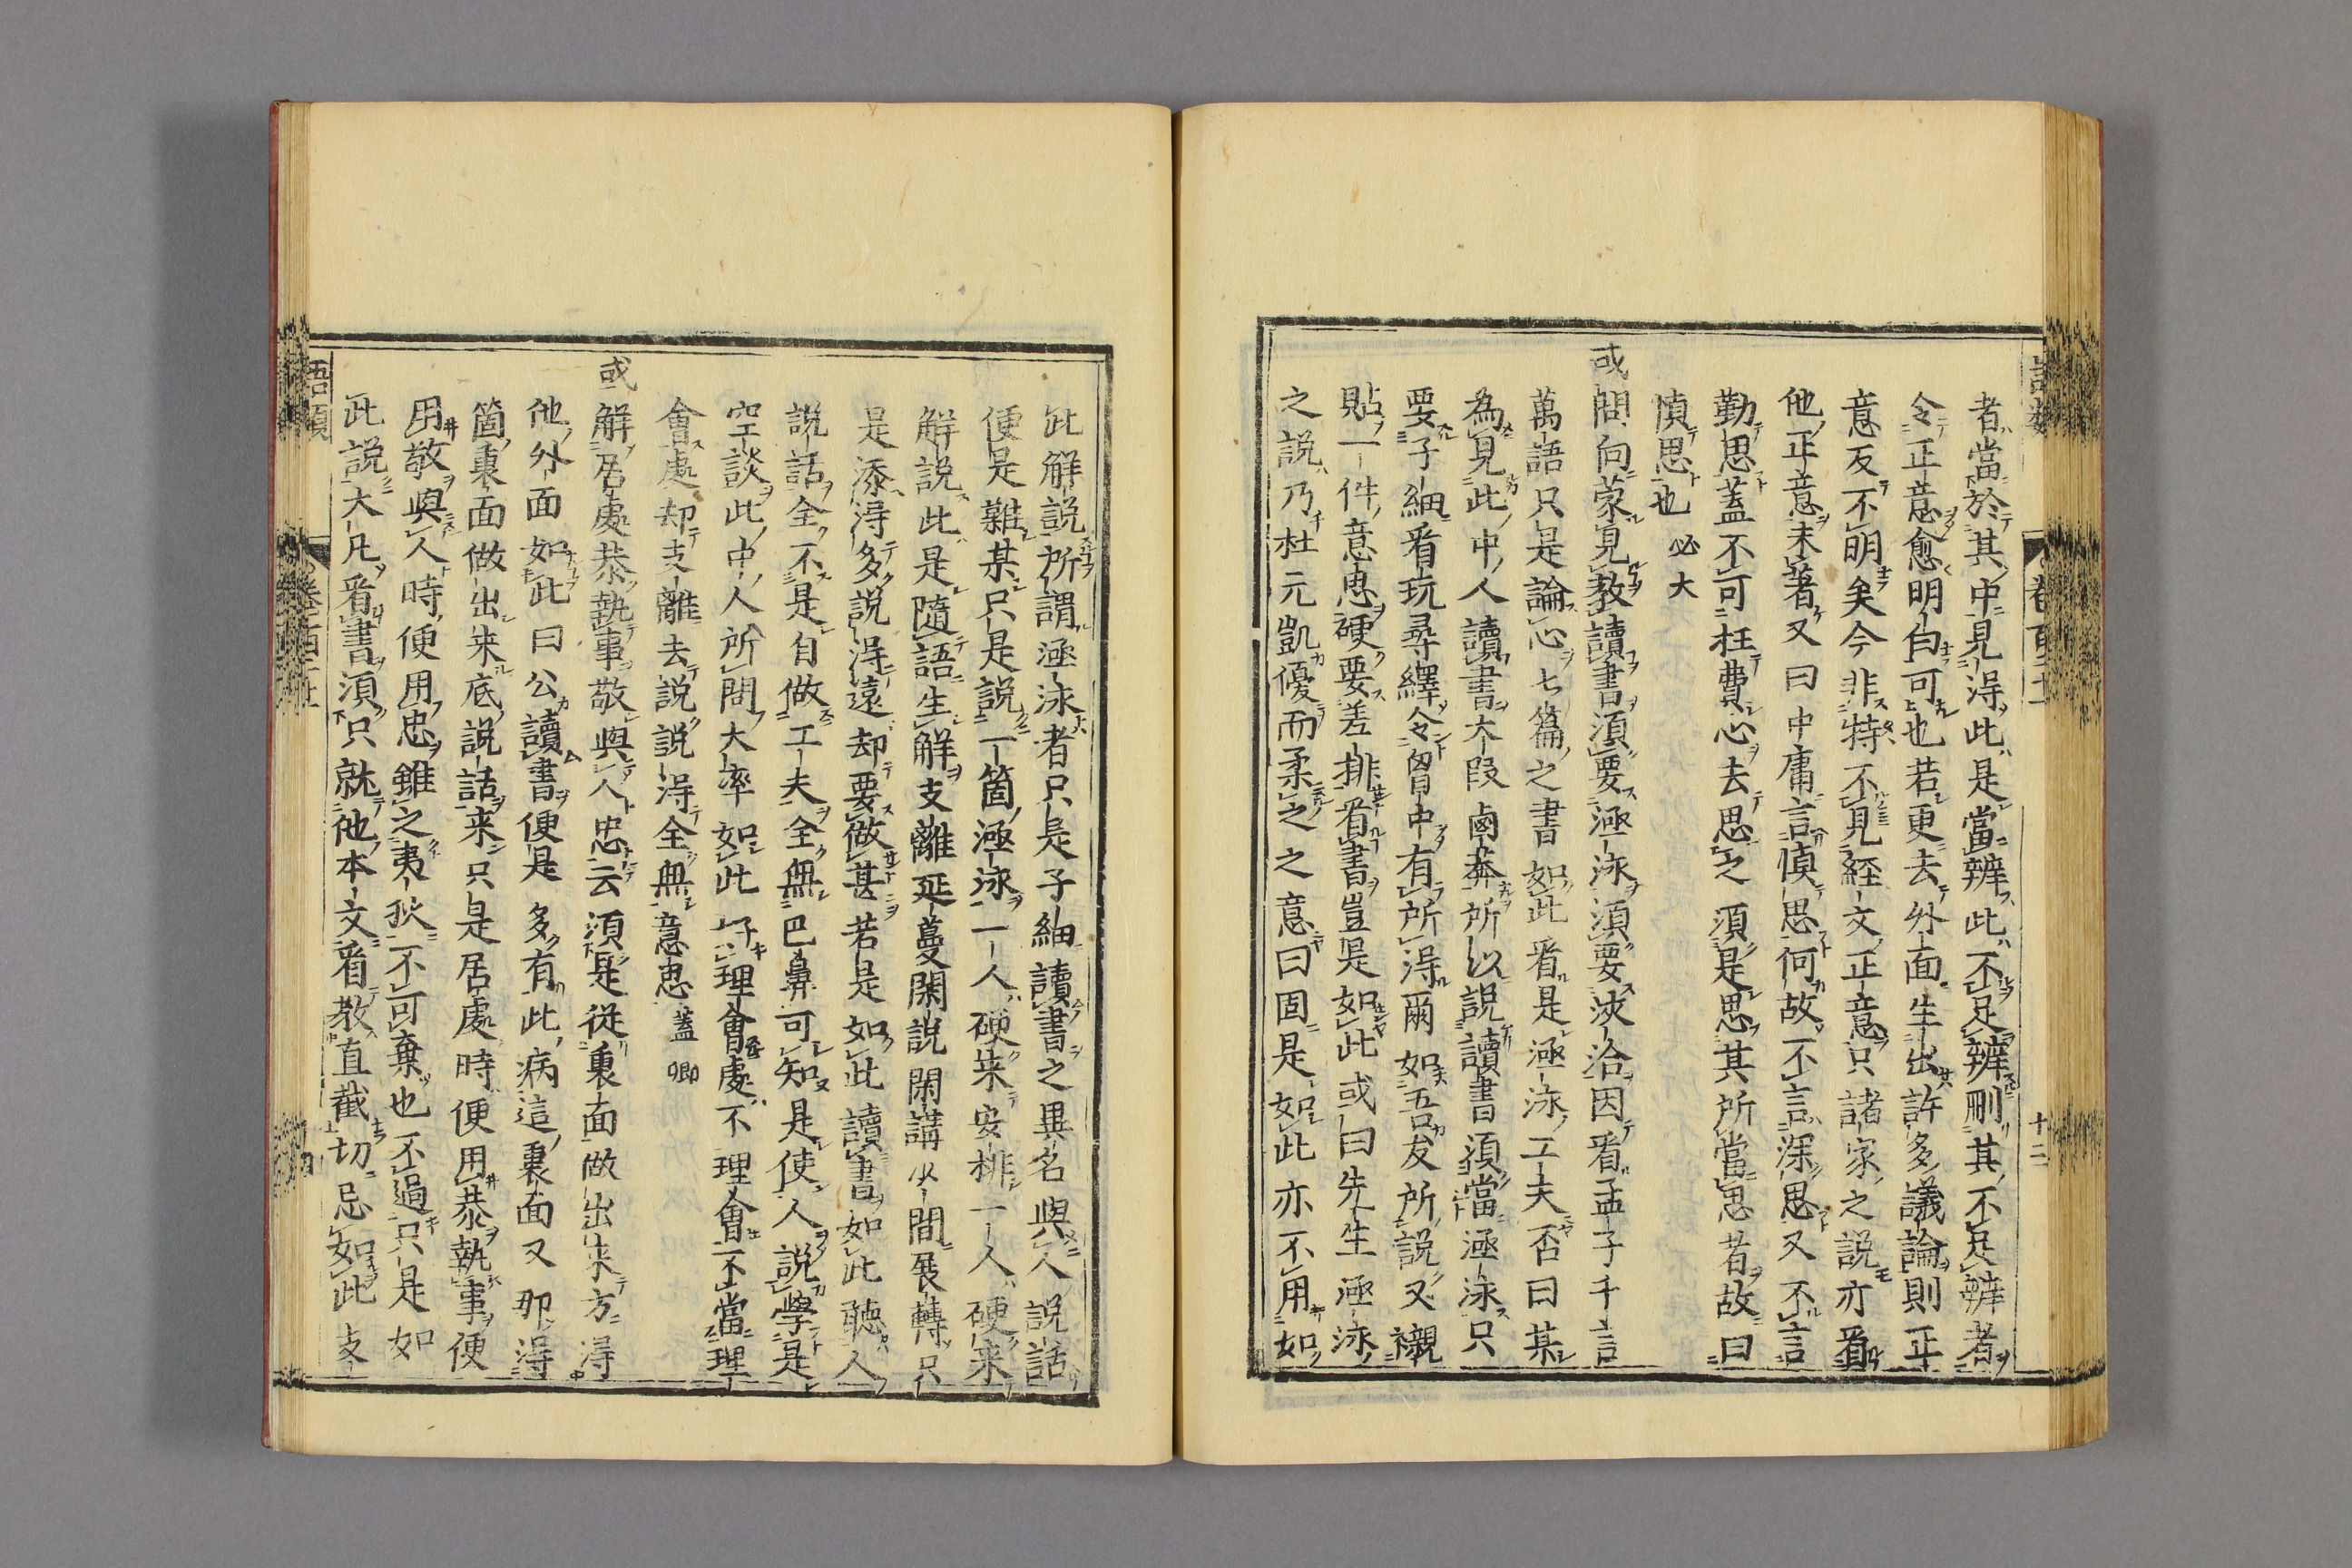 者當於其中見得此是當辨此不足辨刪其不足辨者
令正意愈明白可也若更去外面生出許多議論則正
意反不明矣今非特不見經文正意只諸家之說亦看
他正意未著又曰中庸言慎思何故不言深思又不言
勤思蓋不可枉費心去思之須是思其所當思者故曰
慎思也 必大
或問向蒙見教讀書須要涵泳須要浹洽因看孟子千言
萬語只是論心七篇之書如此看是涵泳工夫否曰某
為見此中人讀書大段鹵莽所以說讀書須當涵泳只
要子細看玩尋繹令胷中有所得爾如吾友所說又襯
貼一件意思硬要差排看書豈是如此或曰先生涵泳
之說乃杜元凱優而柔之之意曰固是如此亦不用如
此解說所謂涵泳者只是子細讀書之異名與人說話
便是難某只是說一箇涵泳一人硬来安排一人硬来
解說此是隨語生解支離延蔓閑說閑講少間展轉只
是添得多說得遠却要做甚若是如此讀書如此聽人
說話全不是自做工夫全無巴鼻可知是使人說學是
空談此中人所問大率如此好理會處不理會不當理
會處却支離去說說得全無意思 蓋卿
或解居處恭執事敬與人忠云須是從裏面做出来方得
他外面如此曰公讀書便是多有此病這裏面又那得
箇裏面做出来底說話来只是居處時便用恭執事便
用敬與人時便用忠雖之夷狄不可棄也不過只是如
此說大凡看書須只就他本文看教直截切忌如此支
語類
卷百二十一
十二